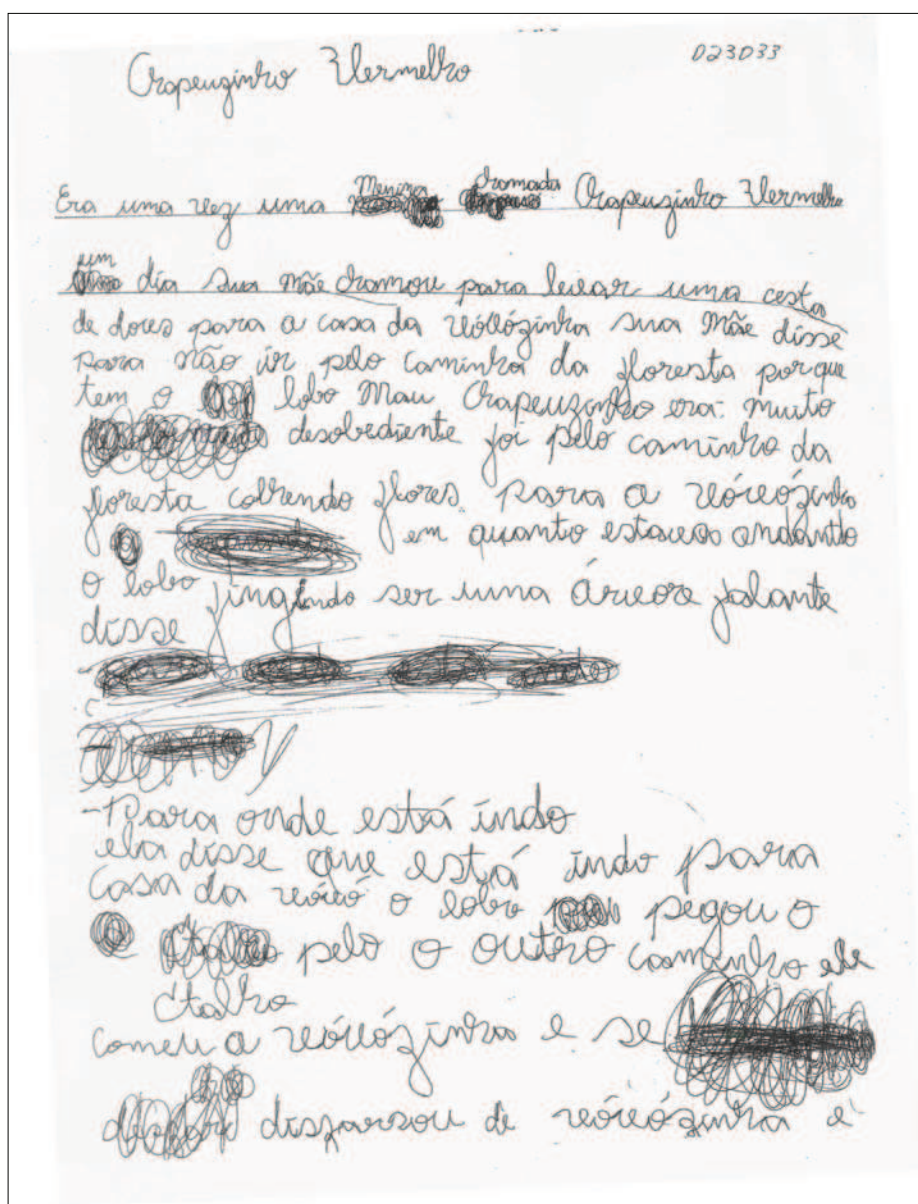 Chapeuzinho Vermelho
D23D33
Era uma vez uma Menina chamada Chapeuzinho Vermelho
um dia sua mãe chamou para levar uma cesta
de dores para a casa da vóvózinha sua mãe disse
para não ir pelo caminho da floresta porque
tem o lobo Mau Chapeuzinho era muito
desobediente foi pelo caminho da
floresta colhendo flores para a vóvózinha
em quanto estava andando
o lobo fingindo ser uma árvore falante
disse
-Para onde está indo
ela disse que está indo para
casa da vóvó o lobo pegou o
pelo o outro caminho ele
atalho
comeu a vóvózinha e se
disfarsou de vóvózinha e